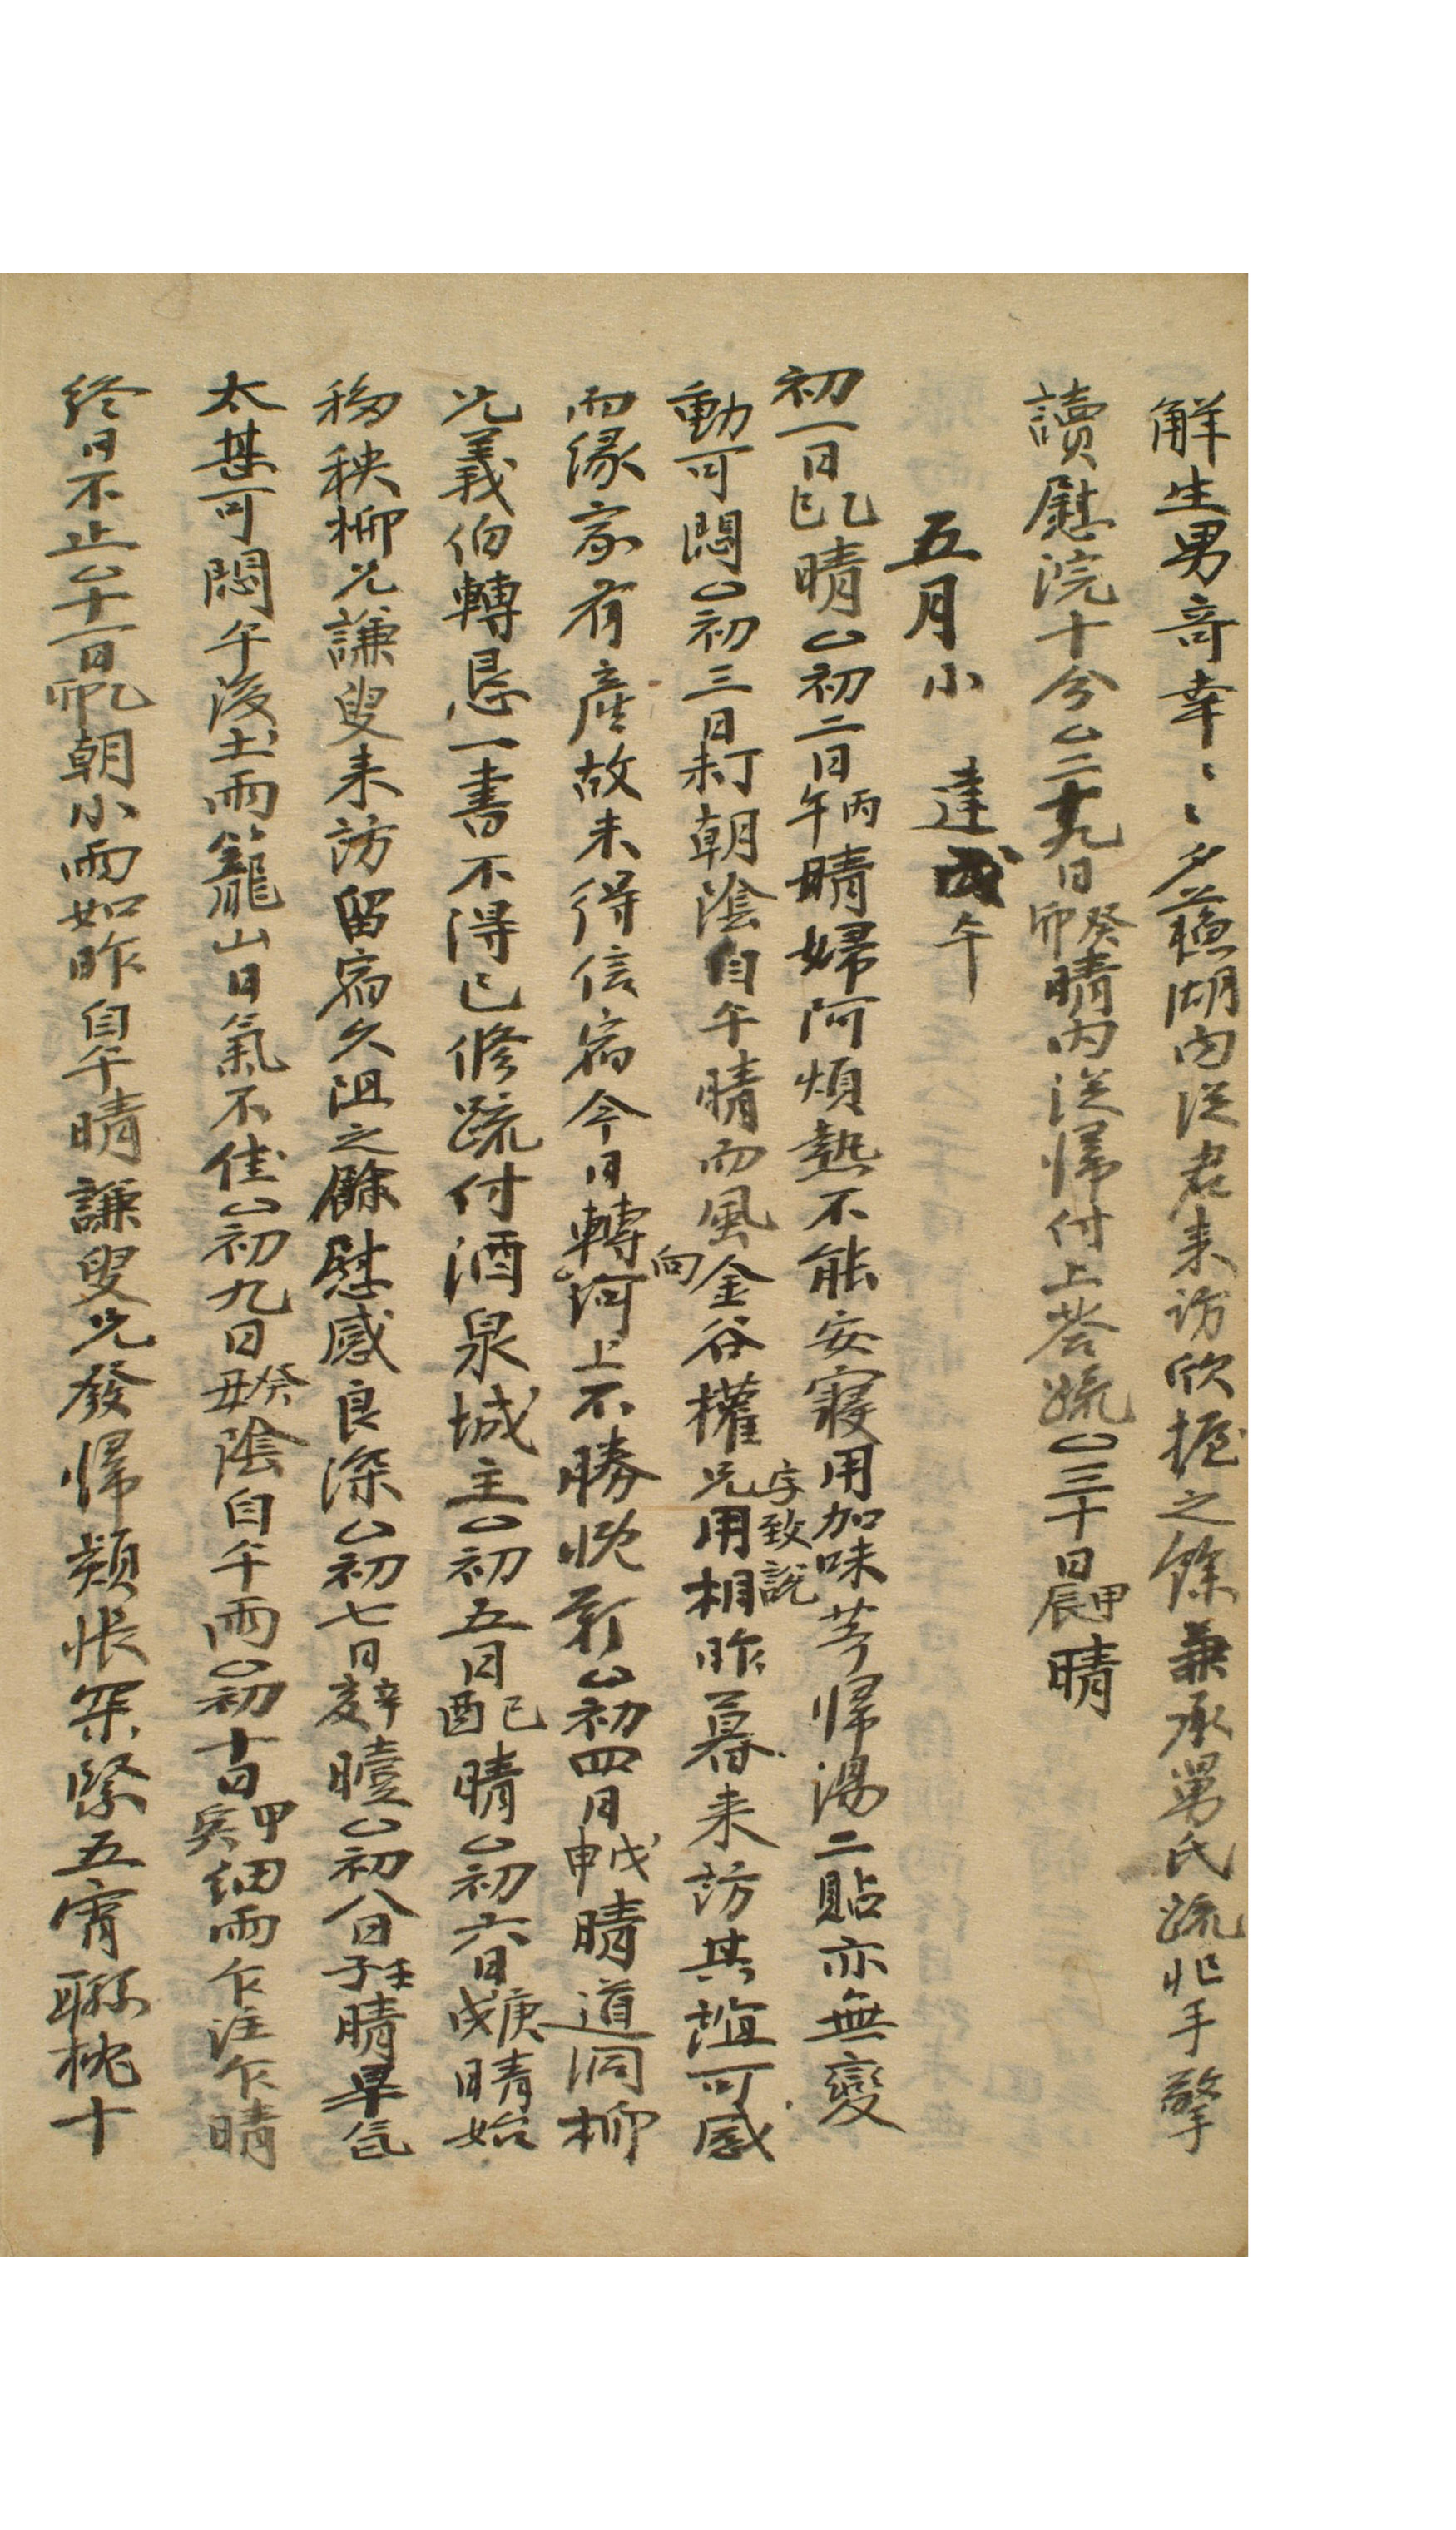 解生男奇幸〻〻夕蘓湖內從君来訪欣握之餘兼承舅氏疏忙手擎
讀慰浣十分○二十九日癸卯晴內從帰付上荅疏○三十日甲辰晴
五月小 建戊午
初一日乙巳晴○初二日丙午晴婦阿煩熱不能安寢用加味芎帰湯二貼亦無變
動可悶○初三日丁未朝陰自午晴而風金谷權兄用相昨暮来訪其誼可感
向 字致說
而緣家有產故未得信宿今日轉河上不勝悵 ○初四日戊申晴道洞柳
兄義伯轉恳一書不得已修疏付酒泉城主○初五日己酉晴○初六日庚戌晴始
移秧柳兄謙叟来訪留宿久阻之餘慰感良深○初七日辛亥曀○初八日壬子晴旱氣
太甚可悶午後土雨籠山日氣不佳○初九日癸丑陰自午雨○初十日甲寅細雨乍注乍晴
終日不止○十一日乙卯朝小雨如昨自午晴謙叟兄發帰頗悵深緊五宵聯枕十